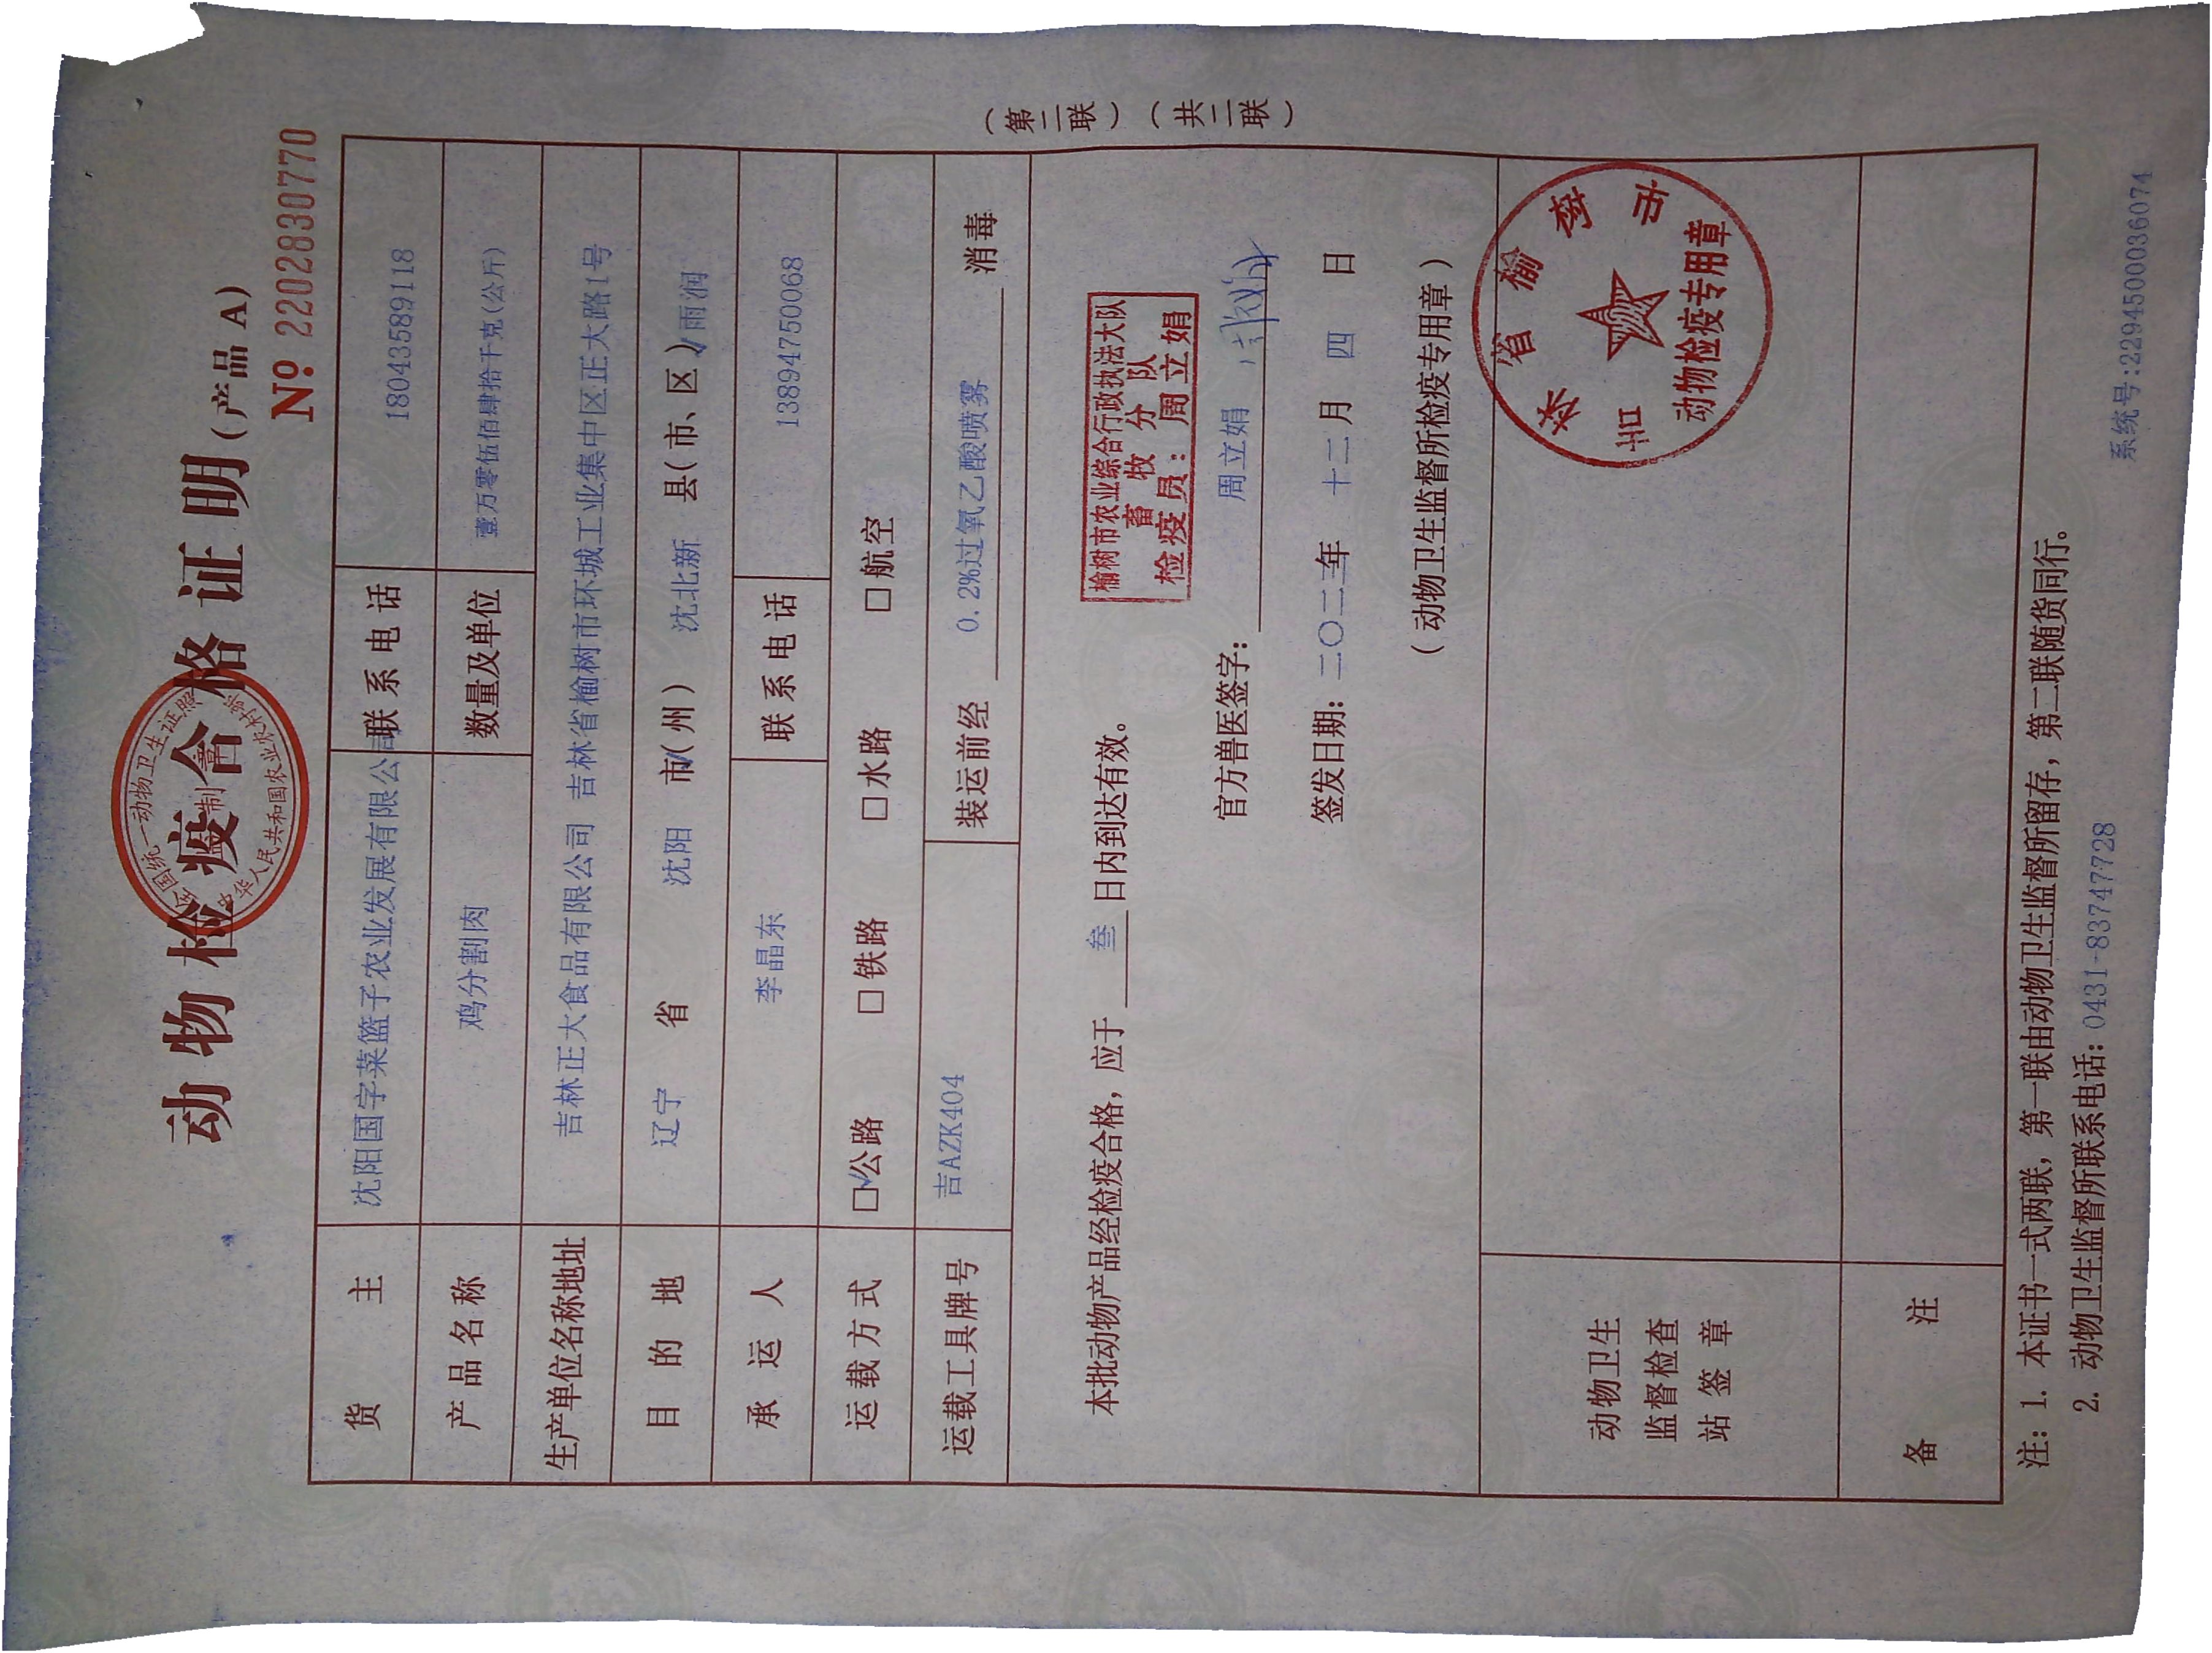 动物检疫合格证明(产品 A)
No 2202830770
货主 沈阳国字菜篮子农业发展有限公司 联系电话 18043589118
产品名称 鸡分割肉 数量及单位 壹万零伍佰肆拾千克(公斤)
生产单位名称地址 吉林正大食品有限公司 吉林省榆树市环城工业集中区正大路1号
目的地 辽宁 省 沈阳 市(州) 沈北新 县(市、区) 雨润
承运人 李晶东 联系电话 13894750068
运载方式 ☑公路 □铁路 □水路 □航空
运载工具牌号 吉AZK404 装运前经 0.2%过氧乙酸喷雾 消毒
本批动物产品经检疫合格，应于 叁 日内到达有效。
榆树市农业综合行政执法大队
畜牧分队
检疫员：周立娟
官方兽医签字： 周立娟
签发日期：二〇二二年 十二月 四 日
(动物卫生监督所检疫专用章)
吉林省榆树市
动物检疫专用章
动物卫生
监督检查
站签章
备注
(第二联)(共二联)
注：1. 本证书一式两联，第一联由动物卫生监督所留存，第二联随货同行。
2. 动物卫生监督所联系电话：0431-83747728
系统号:2294500036074